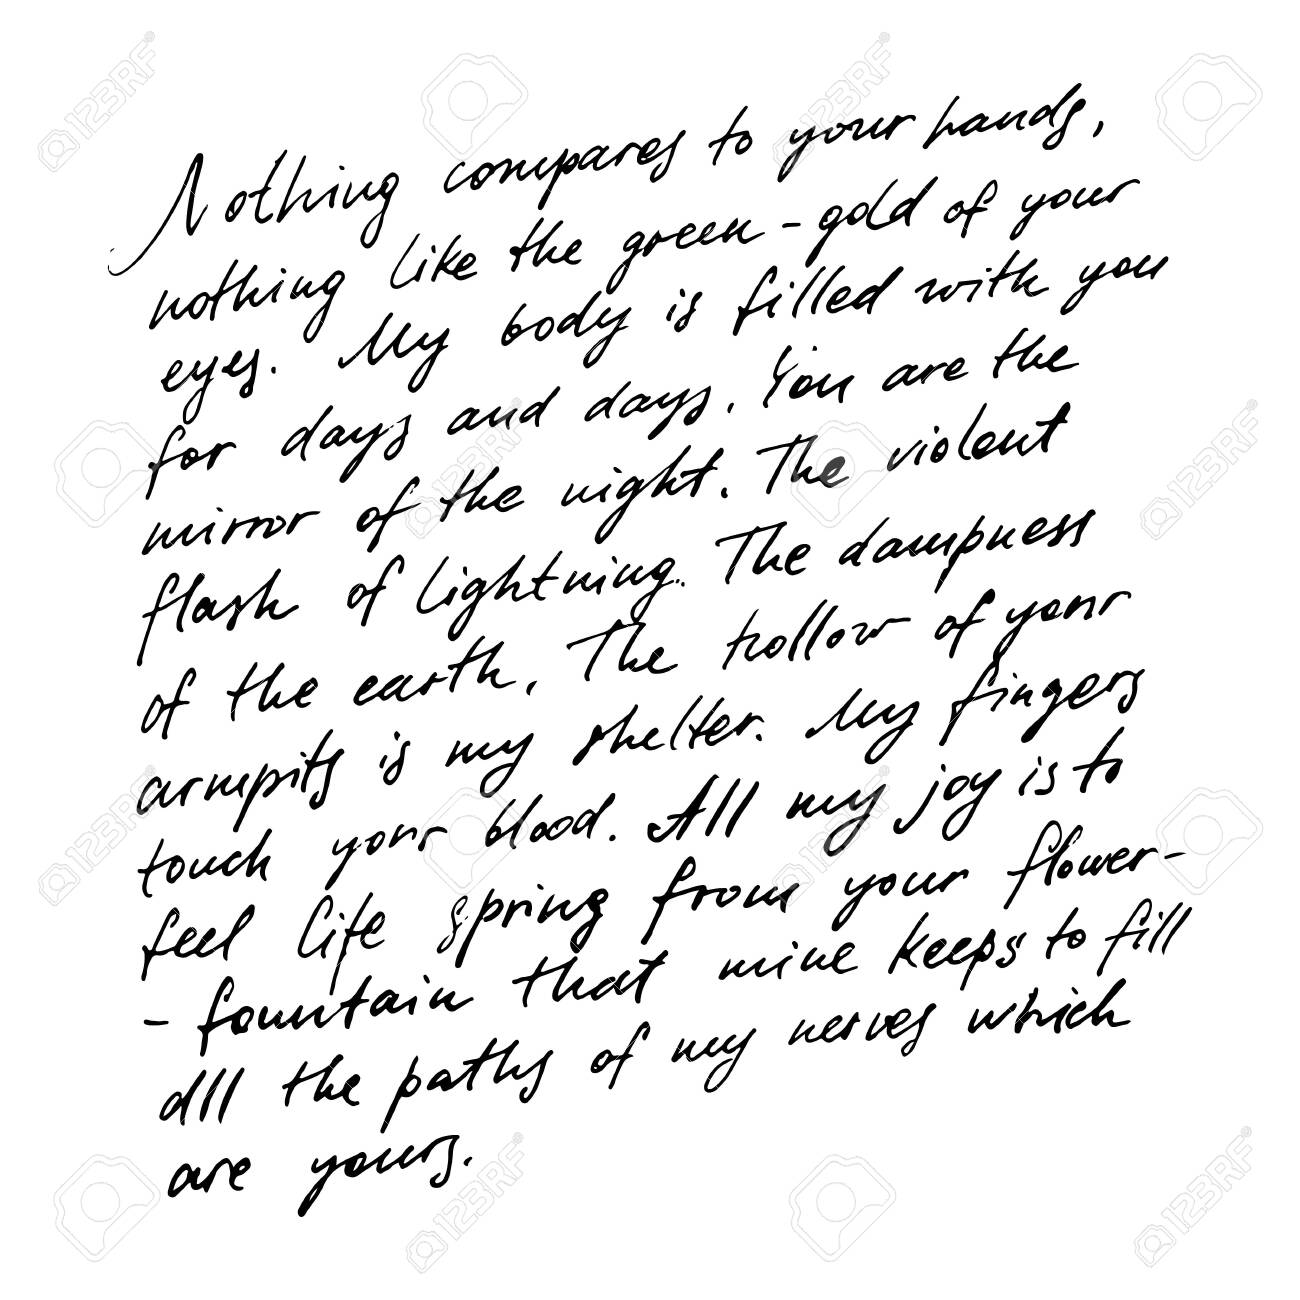 Nothing compares to your hands,
nothing like the green-gold of your
eyes. My body is filled with you
for days and days. You are the
mirror of the night. The violent
flash of lightning. The dampness
of the earth. The hollow of your
armpits is my shelter. My fingers
touch your blood. All my joy is to
feel life spring from your flower-
-fountain that mine keeps to fill
all the paths of my nerves which
are yours.
123RF